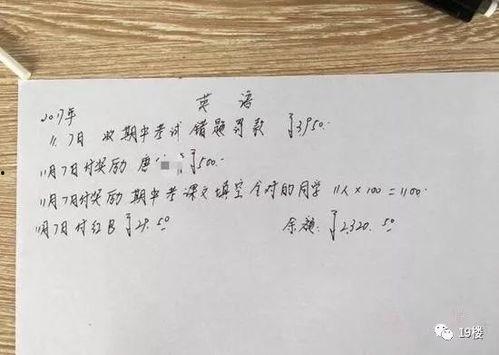 英语
2017年
11.7日 收期中考试错题罚款 ¥3950.
11月7日付奖励 唐 ¥500.
11月7日付奖励 期中考课文填空全对的同学 11人×100=1100.
11月7日付红B ¥29.50 余额:¥2320.50
19楼